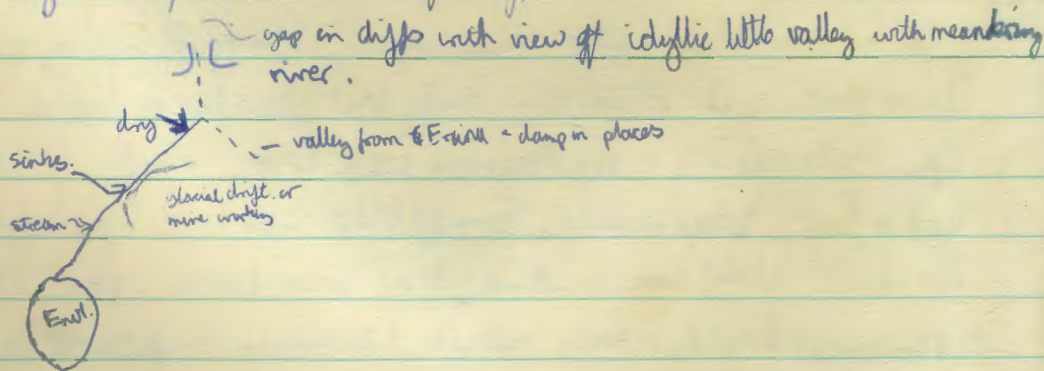 gap in cliffs with view of idyllic little valley with meandering
river.
dry
valley from & Ercina - damp in places
sinks.
glacial drift or
mine working
stream
Enol.